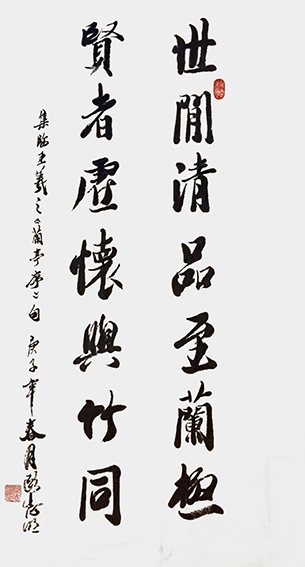 世間清品至蘭極
賢者虛懷與竹同
集臨王羲之蘭亭序二句 庚子年春月